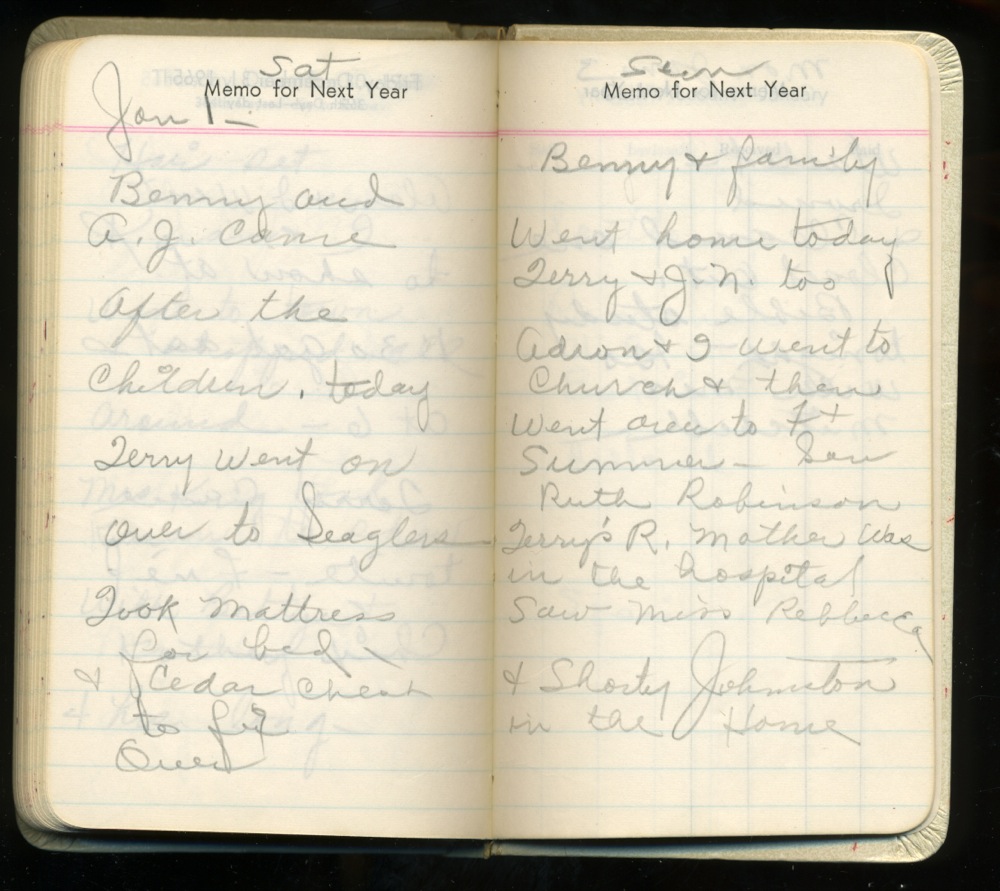 Sat
Memo for Next Year
Jan 1 -
Benny and
A. J. Came
After the
Children. today
Terry Went on
over to Seaglers
Took Mattress
for bed -
& Cedar Chest
to fix
Over
Sun
Memo for Next Year
Benny & family
Went home today
Terry & J. N. too
Adron & I went to
Church & then
Went over to Ft
Sumner - Saw
Ruth Robinson
Terry's R. Mother Was
in the hospital
Saw Miss Rebbecca
& Shorty Johnston
in the Home